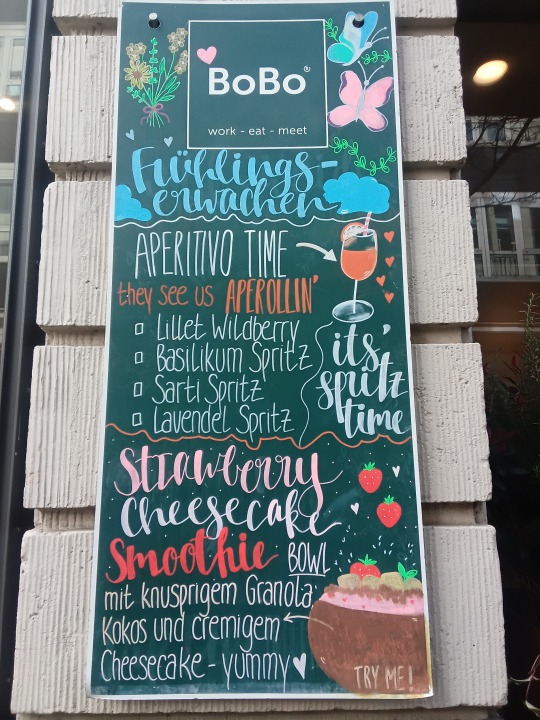 BoBo®
work - eat - meet
Frühlings-
erwachen
APERITIVO TIME
they see us APEROLLIN'
Lillet Wildberry
Basilikum Spritz
Sarti Spritz
Lavendel Spritz
its'
spritz
time
Strawberry
Cheesecake
Smoothie BOWL
mit knusprigem Granola,
Kokos und cremigem
Cheesecake - yummy
TRY ME!